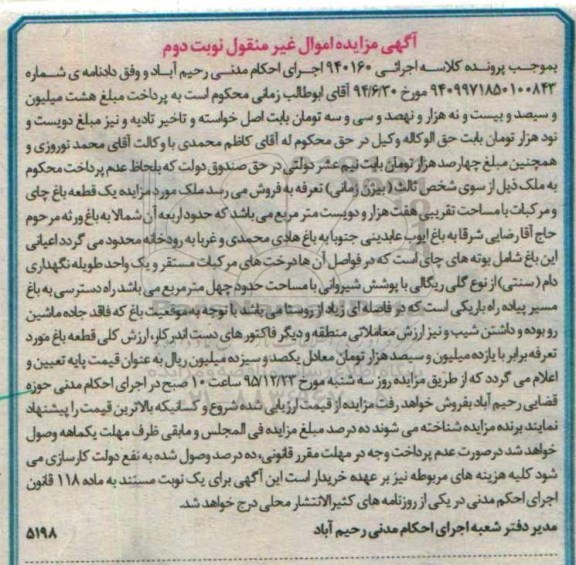 آگهی مزایده اموال غیر منقول نوبت دوم
بموجب پرونده کلاسه اجرائی ۹۴۰۱۶۰ اجرای احکام مدنی رحیم آباد و وفق دادنامه ی شماره
۹۴۰۹۹۷۱۸۵۰۱۰۰۸۴۳ مورخ ۹۴/۶/۳۰ آقای ابوطالب زمانی محکوم است به پرداخت مبلغ هشت میلیون
و سیصد و بیست و نه هزار و نهصد و سی و سه تومان بابت اصل خواسته و تاخیر تادیه و نیز مبلغ دویست و
نود هزار تومان بابت حق الوکاله وکیل در حق محکوم له آقای کاظم محمدی با وکالت آقای محمد نوروزی و
همچنین مبلغ چهارصد هزار تومان بابت نیم عشر دولتی در حق صندوق دولت که بلحاظ عدم پرداخت محکوم
به ملک ذیل از سوی شخص ثالث ( بیژن زمانی) تعرفه به فروش می رسد ملک مورد مزایده یک قطعه باغ چای
و مرکبات با مساحت تقریبی هفت هزار و دویست متر مربع می باشد که حدود اربعه آن شمالا به باغ ورثه مرحوم
حاج آقا رضایی شرقا به باغ ایوب عابدینی جنوبا به باغ هادی محمدی و غربا به رودخانه محدود می گردد اعیانی
این باغ شامل بوته های چای است که در فواصل آن ها درخت های مرکبات مستقر و یک واحد طویله نگهداری
دام (سنتی) از نوع گلی ریگالی با پوشش شیروانی با مساحت حدود چهل متر مربع می باشد راه دسترسی به باغ
مسیر پیاده راه باریکی است که در فاصله ای زیاد از روستا می باشد با توجه به موقعیت باغ که فاقد جاده ماشین
رو بوده و داشتن شیب و نیز ارزش معاملاتی منطقه و دیگر فاکتور های دست اندر کار، ارزش کلی قطعه باغ مورد
تعرفه برابر با یازده میلیون و سیصد هزار تومان معادل یکصد و سیزده میلیون ریال به عنوان قیمت پایه تعیین و
اعلام می گردد که از طریق مزایده روز سه شنبه مورخ ۹۵/۱۲/۲۳ ساعت ۱۰ صبح در اجرای احکام مدنی حوزه
قضایی رحیم آباد بفروش خواهد رفت مزایده از قیمت ارزیابی شده شروع و کسانیکه بالاترین قیمت را پیشنهاد
نمایند برنده مزایده شناخته می شوند ده درصد مبلغ مزایده فی المجلس و مابقی ظرف مهلت یکماهه وصول
خواهد شد در صورت عدم پرداخت وجه در مهلت مقرر قانونی، ده درصد وصول شده به نفع دولت کارسازی می
شود کلیه هزینه های مربوطه نیز بر عهده خریدار است این آگهی برای یک نوبت مستند به ماده ۱۱۸ قانون
اجرای احکم مدنی در یکی از روزنامه های کثیرالانتشار محلی درج خواهد شد.
مدیر دفتر شعبه اجرای احکام مدنی رحیم آباد ۵۱۹۸